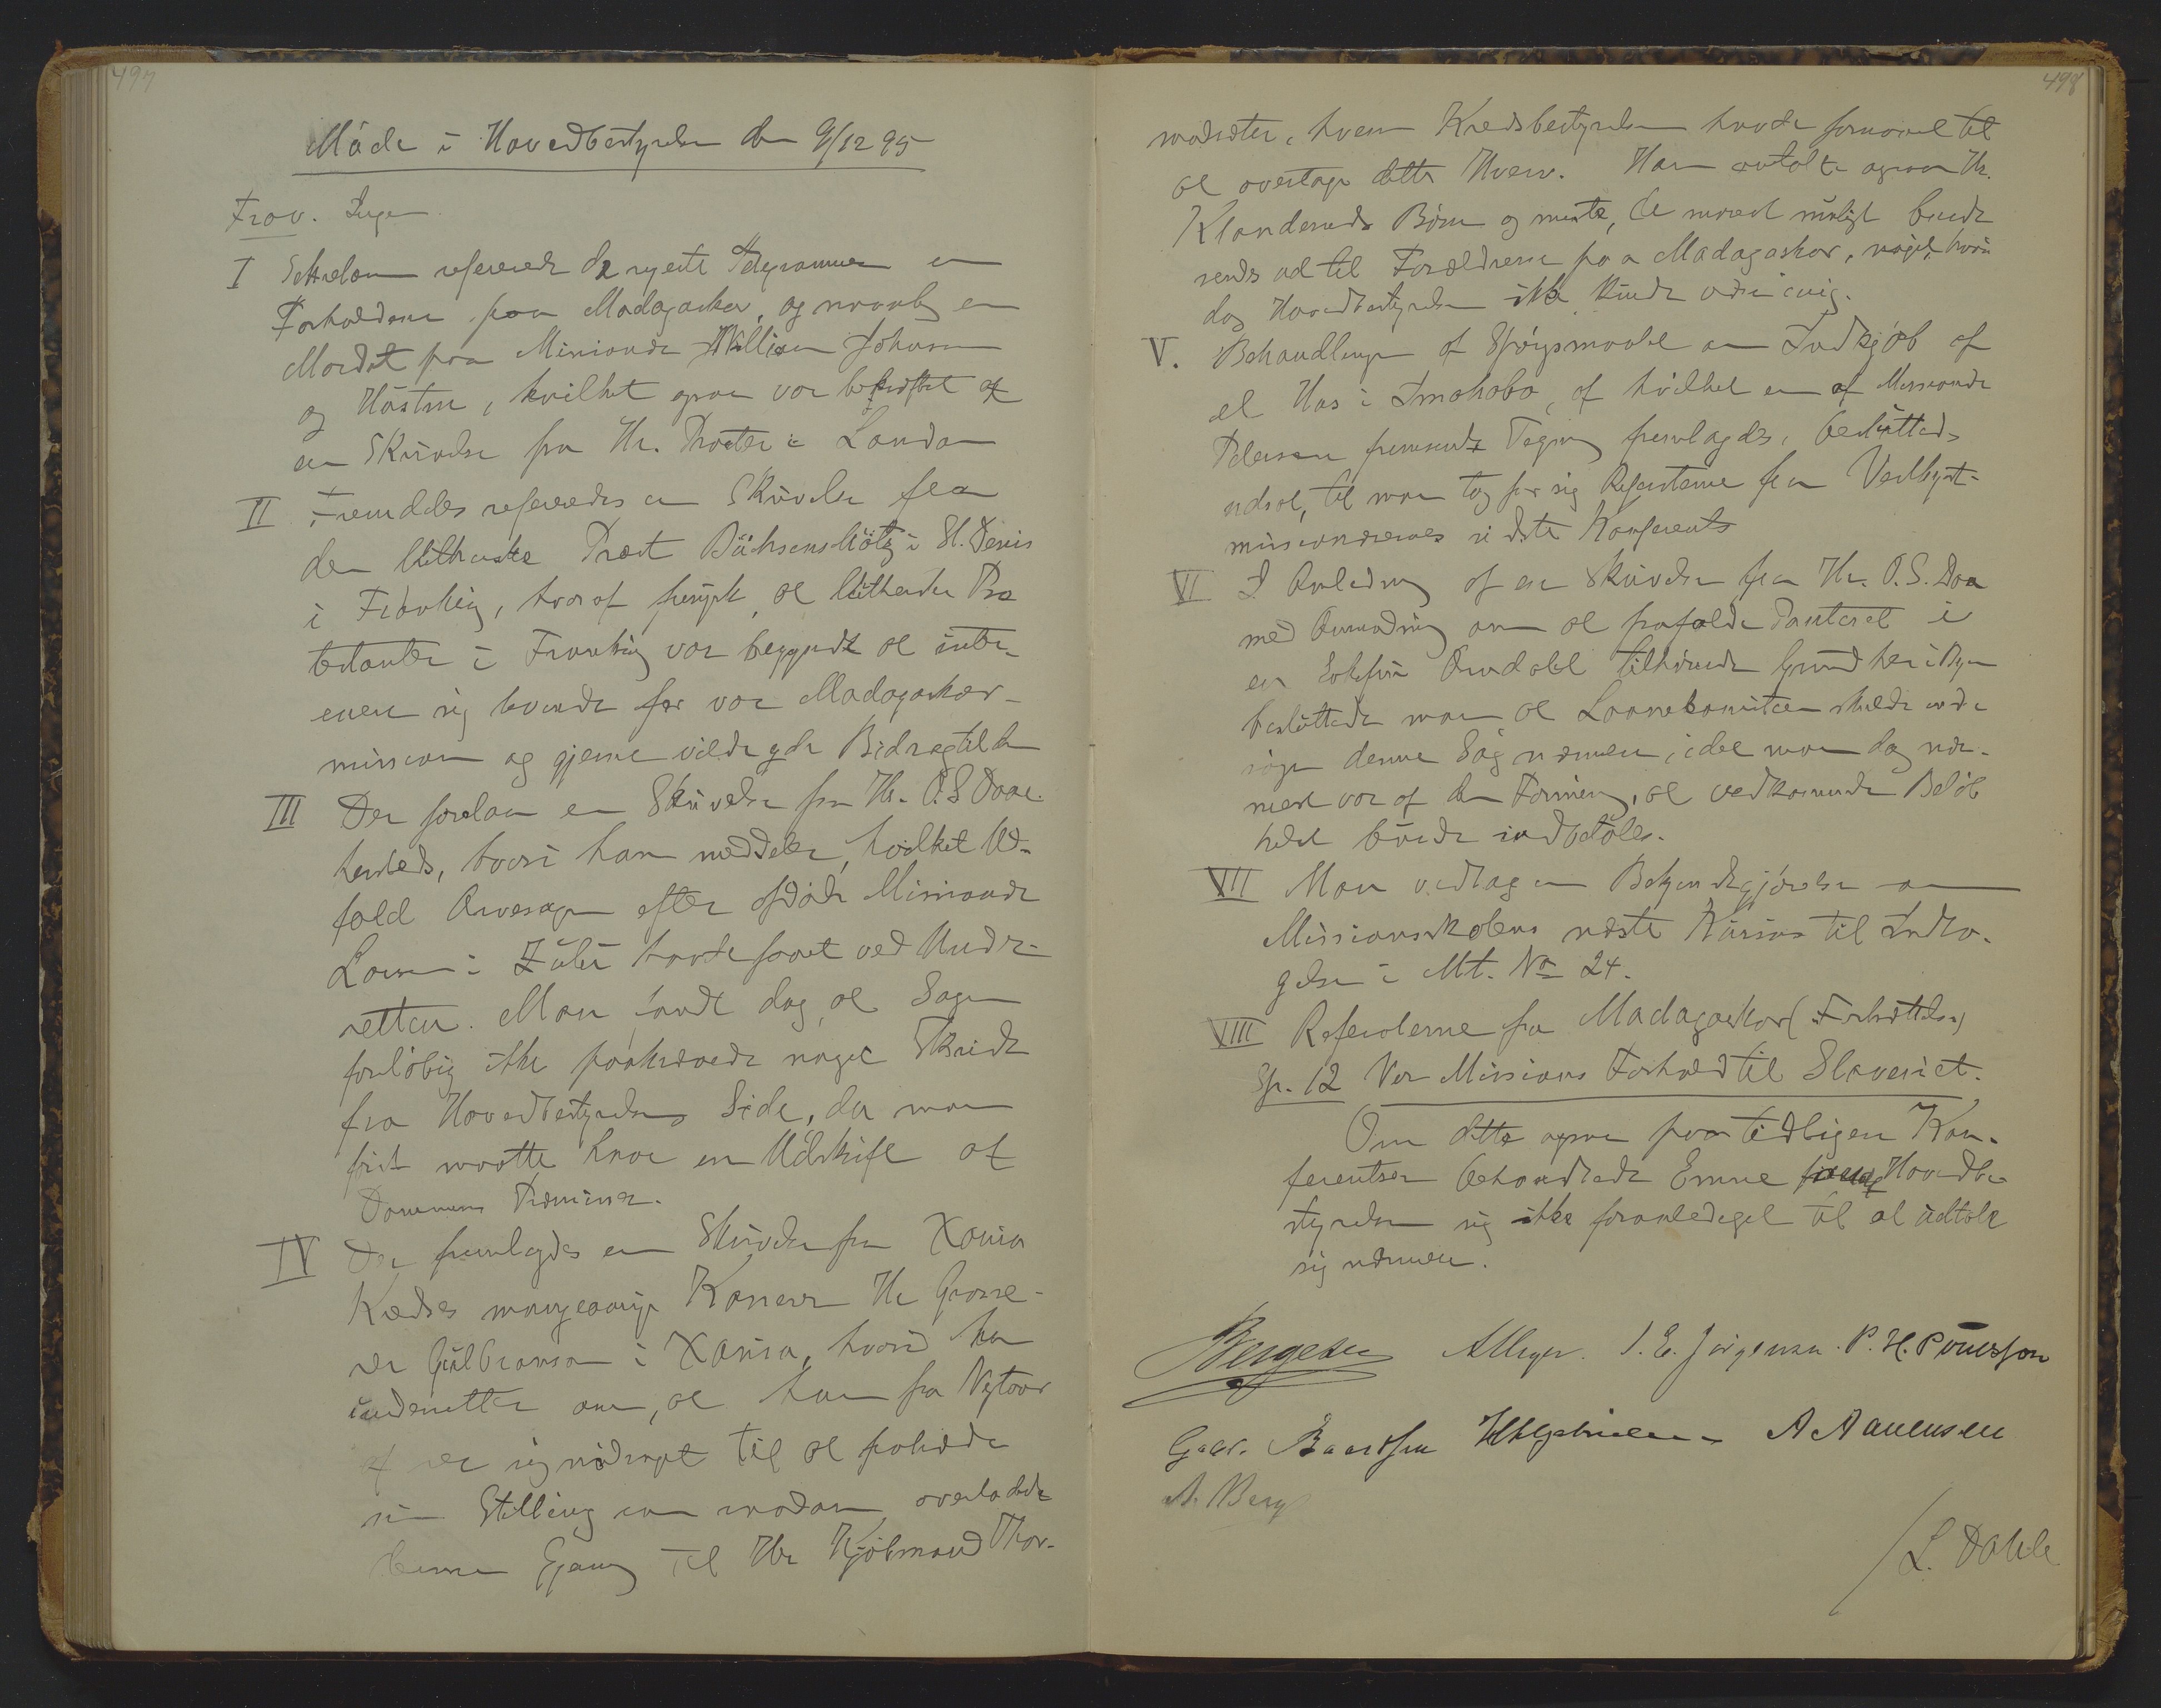 497
Möde i Hovedbestyrelsen den 9/12 95
Frav. Ingen.
I Sekretæren refererede de nyeste Telegrammer om
Forholdene paa Madagaskar, og navnlig om
Mordet paa Missionær William Johnson
og Hustru, hvilket ogsaa var bekræftet af
en Skrivelse fra Hr. Procter i London
II Fremdeles refereredes en Skrivelse fra
den lutherske Præst i St. Denis
i Frankrig, hvoraf fremgik, at lutherske Pro
testanter i Frankrig var begyndt at inter-
essere sig levende for vor Madagaskar-
mission og gjerne vilde yde Bidrag til den
III Der forelaa en Skrivelse fra Hr. O. S. Daae
hersteds, hvori han meddeler, hvilket Ud-
fald Arvesagen efter afdöde Missionær
Larsen i Zulu havde faaet ved Under-
retten. Man fandt dog, at Sagen
forlöbig ikke paakrævede noget Skridt
fra Hovedbestyrelsens Side, da man
först maatte have en Udskrift af
Dommens Præmisser.
IV Der fremlagdes en Skrivelse fra Xania
Kredses mangeaarige Kasserer Hr Grosse-
rer Gulbranson i Xania, hvori han
underretter om, at han fra Nytaar
af ser sig nödsaget til at fratræde
sin Stilling som saadan, overladende
denne Gjerning til Hr Kjöbmand Thor-
498
waldsen, hvem Kredsbestyrelsen havde formaaet til
at overtage dette Hverv. Han omtalte ogsaa Hr.
Börn og mente, de snarest muligt burde
sendes ud til Forældrene paa Madagaskar, noget, hvori
dog Hovedbestyrelsen ikke kunde være enig.
V. Behandlingen af Spörgsmaalet om Indkjöb af
et Hus i Imahabo, af hvilket en af Missionær
Petersen fremsendt Tegning fremlagdes, besluttedes
udsat, til man tog for sig Referaterne fra Vestkyst-
missionærernes sidste Konferents
VI I Anledning af en Skrivelse fra Hr. O. S. Daa
med Anmodning om at frafalde Panteret i
en Enkefru Arndahl tilhörende Grund her i Byen
besluttede man at Laanekomiteen skulde under-
söge denne Sag nærmere, idet man dog nær-
mest var af den Formening, at vedkommende Belöb
helst burde indbetales.
VII Man vedtog en Bekjendtgjörelse om
Missionsskolens næste Kursus til Indta-
gelse i Mt. No 24.
VIII Referaterne fra Madagaskar (Fortsættelse)
Sp. 12 Vor Missions Forhold til Slaveriet.
Om dette ogsaa paa tidligere Kon-
ferentser behandlede Emne fandt Hovedbe-
styrelsen sig ikke foranlediget til at udtale
sig nærmere.
Bergesen A Meyer. I. E. Jörgensen. P. H.
Gabr. Baardsen A Aanensen
A. Berg
/ L. Dahle